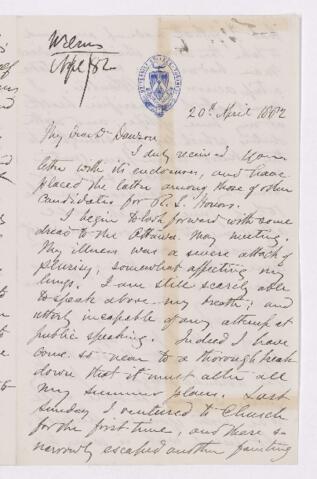 Apl/82
20th April 1882
My Dear Dr Dawson
I duly received your
letter with its enclosure, and have
placed the latter among those of other
Candidates for R. S. Honors.
I begin to look forward with some
dread to the Ottawa May meeting.
My illness was a severe attack of
pleurisy; somewhat affecting my
lungs. I am still scarcely able
to speak above my breath; and
utterly incapable of any attempt at
public speaking. Indeed I have
come so near to a thorough break
down that it must alter all
my summer plans. Last
Sunday I ventured to Church
for the first time, and there so
narrowly escaped another fainting